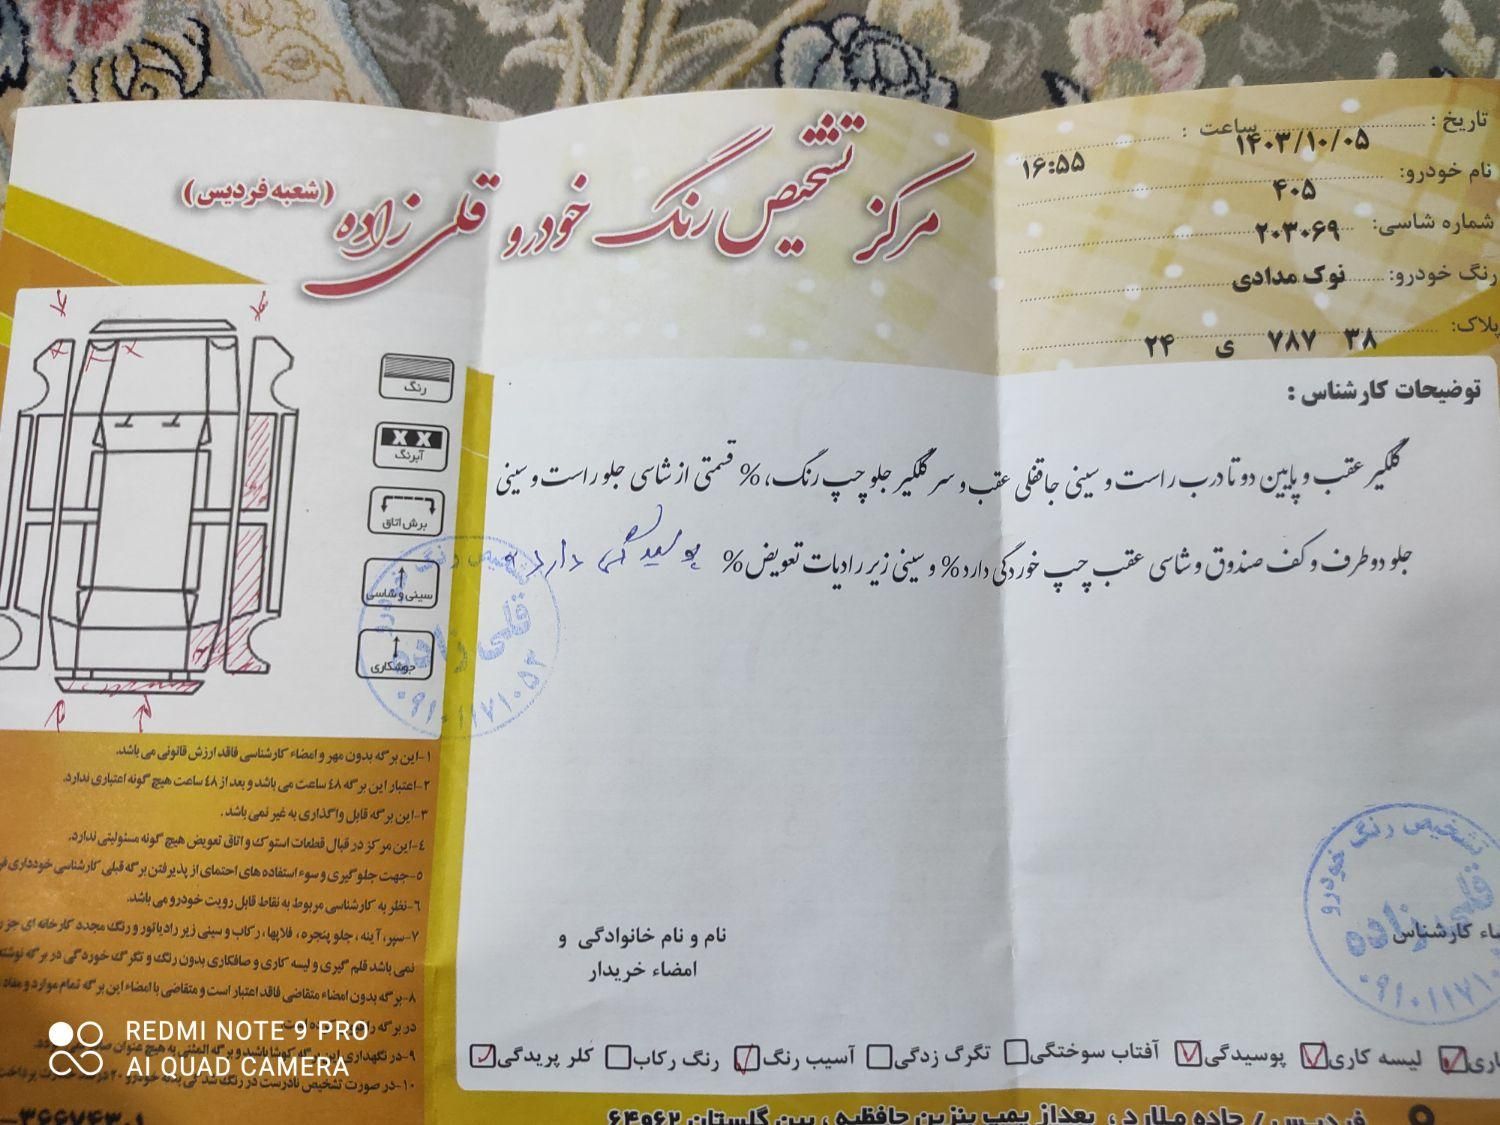 مرکز تشخیص رنگ خودرو قلی زاده
(شعبه فردیس)
تاریخ : ۱۴۰۳/۱۰/۰۵ ساعت : ۱۶:۵۵
نام خودرو: ۴۰۵
شماره شاسی: ۲۰۳۰۶۹
رنگ خودرو: نوک مدادی
پلاک: ۳۸ ۷۸۷ ی ۲۴
توضیحات کارشناس :
گلگیر عقب و پایین دو تا درب راست و سینی جاقفلی عقب و سر گلگیر جلو چپ رنگ، % قسمتی از شاسی جلو راست و سینی
جلو دو طرف و کف صندوق و شاسی عقب چپ خوردگی دارد% و سینی زیر رادیات تعویض% پوسیدگی دارد
رنگ
X X
آبرنگ
برش اتاق
سینی و شاسی
جوشکاری
تشخیص رنگ خودرو
قلی زاده
۰۹۱۰۱۱۷۱۰۵۲
۱-این برگه بدون مهر و امضاء کارشناسی فاقد ارزش قانونی می باشد.
۲-اعتبار این برگه ٤٨ ساعت می باشد و بعد از ٤٨ ساعت هیچ گونه اعتباری ندارد.
۳-این برگه قابل واگذاری به غیر نمی باشد.
٤-این مرکز در قبال قطعات استوک و اتاق تعویض هیچ گونه مسئولیتی ندارد.
۵-جهت جلوگیری و سوء استفاده های احتمای از پذیرفتن برگه قبلی کارشناسی خودداری
۶-نظر به کارشناسی مربوط به نقاط قابل رویت خودرو می باشد.
۷-سپر، آینه ، جلو پنجره ، فلاپها، رکاب و سینی زیر رادیاتور و رنگ مجدد کارخانه ای جز
نمی باشد قلم گیری و لیسه کاری و صافکاری بدون رنگ و تگرگ خوردگی در برگه
۸-برگه بدون امضاء متقاضی فاقد اعتبار است و متقاضی با امضاء این برگه تمام موارد و مفاد
در برگه را
۹-در نگهداری این برگه کوشا باشید و برگه المثنی به هیچ عنوان
۱۰-در صورت تشخیص نادرست در رنگ
نام و نام خانوادگی و
امضاء خریدار
کارشناس
تشخیص رنگ خودرو
قلی زاده
لیسه کاری
پوسیدگی
آفتاب سوختگی
تگرگ زدگی
آسیب رنگ
رنگ رکاب
کلر پریدگی
فردیس / جاده ملارد ، بعداز پمپ بنزین حافظیه ، بین گلستان ۶۲و۶۴
REDMI NOTE 9 PRO
AI QUAD CAMERA